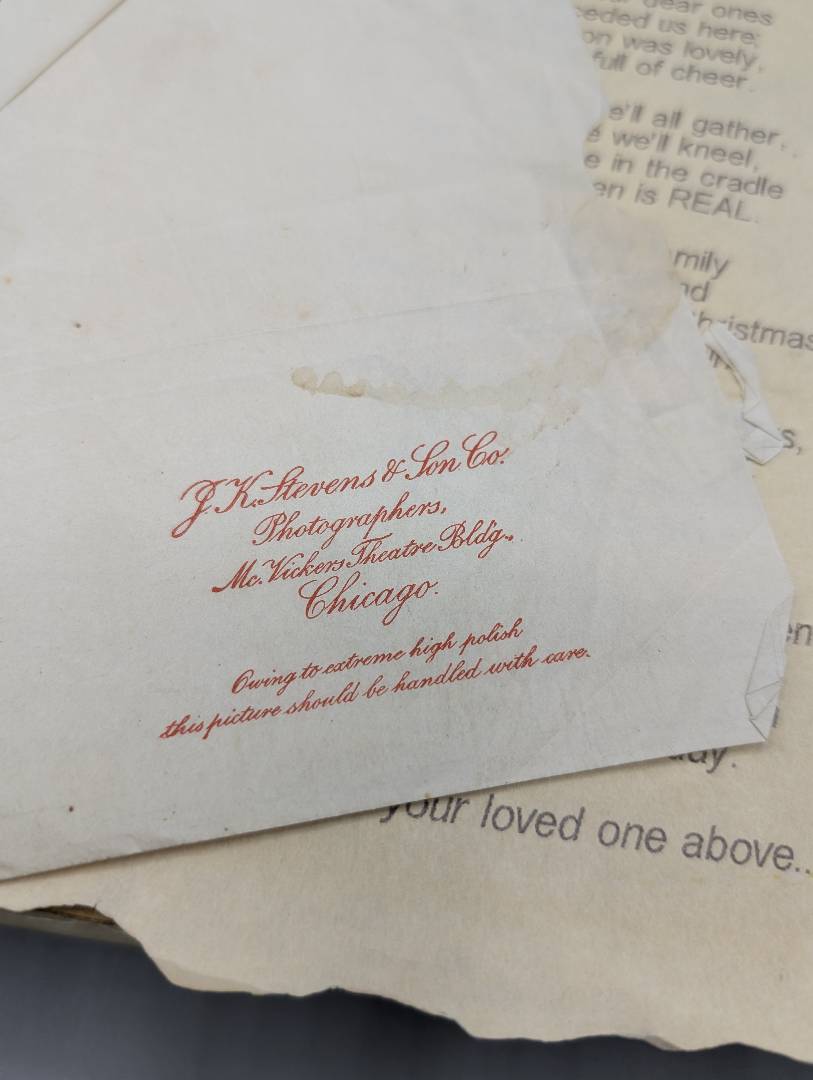 dear ones
us here;
was lovely,
full of cheer.
all gather..
we'll kneel,
in the cradle
is REAL.
J. K. Stevens & Son Co.
Photographers,
Mc. Vickers Theatre Bldg.,
Chicago.
Owing to extreme high polish
this picture should be handled with care.
your loved one above..